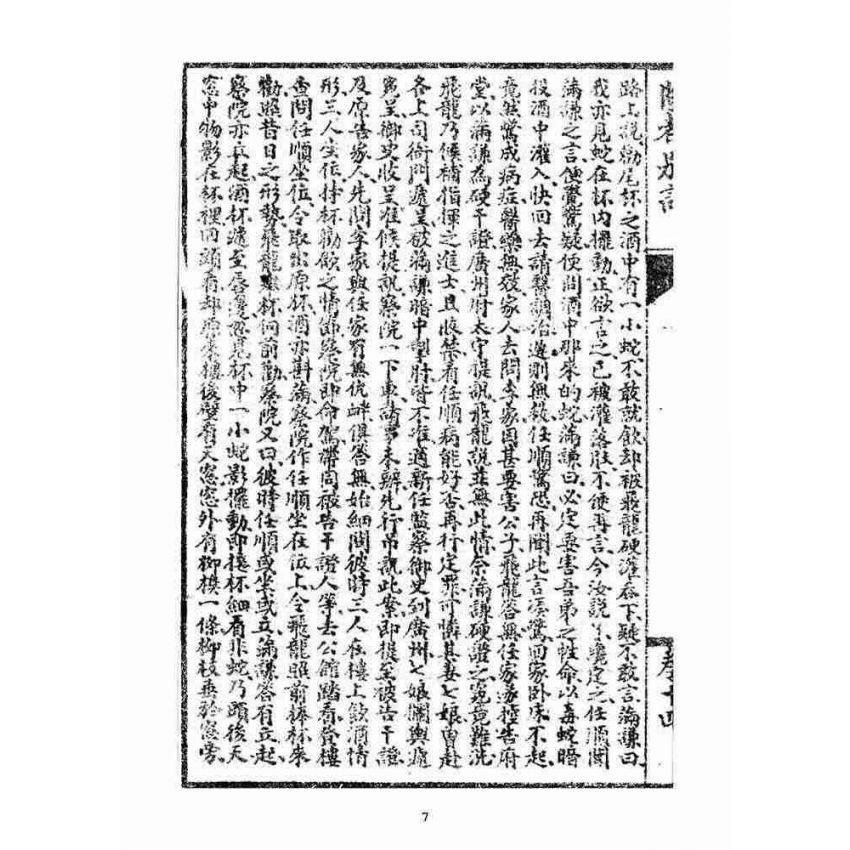 路上說勸尾杯之酒中有一小蛇不敢就飲却被飛龍硬灌吞下疑不敢言瀰謙曰
我亦見蛇在杯內擺動正欲言之已被灌落肚不便再言今汝說來是定之任順聞
瀰謙之言便覺驚疑便問酒中那來的蛇瀰謙曰必定要害吾弟之性命以毒蛇暗
投酒中灌入快回去請醫調治遲則無救任順驚恐再聞此言凑驚回家卧床不起
竟然驚成病症醫藥無效家人去問李家因甚要害公子飛龍答無任家遂控告府
堂以瀰謙為硬干證廣州府太守提訊飛龍說並無此情奈瀰謙硬證之冤竟難洗
飛龍乃候補指揮之進士且收禁看任順病能好否再行定罪可憐其妻七娘曾赴
各上司衙門遞呈被瀰謙暗中掣肘皆不准適新任監察御史到廣州七娘攔輿遞
冤呈御史收呈准候提訊察院一下車諸事未辦先行吊訊此案即提至被告干證
及原告家人先問李家與任家有無仇衅俱答無始細問彼時三人在樓上飲酒情
形三人坐位持杯勸飲之情節察院即命駕帶同被告干證人等去公館踏看登樓
查問任順坐位令取出原杯酒亦斟滿察院作任順坐在位上令飛龍照前捧杯來
勸照昔日之形勢飛龍捧杯向前勸察院又曰彼時任順或坐或立瀰謙答有立起
察院亦立起酒杯遞至唇邊忽見杯中一小蛇影擺動即接杯細看非蛇乃頭後天
窓中物影在杯裡回頭看却原來樓後壁有天窓窓外有柳樹一條柳枝垂於窓旁
卷十四
7